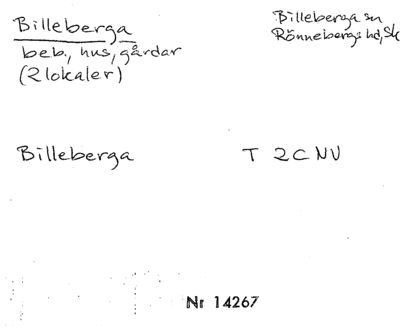 Billeberga
beb., hus, gårdar
(2 lokaler)
Billeberga sn
Rönnebergs hd, Sk
Billeberga T 2C NV
Nr 14267